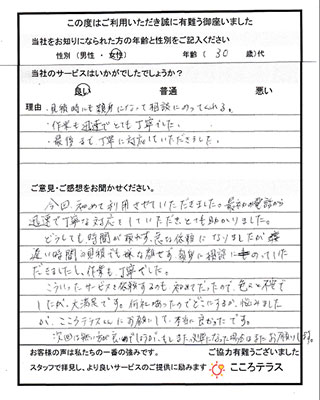 この度はご利用いただき誠に有難う御座いました
当社をお知りになられた方の年齢と性別をご記入ください
性別 (男性 ・ 女性)　年齢 ( 30 歳)代
当社のサービスはいかがでしたでしょうか?
良い　普通　悪い
理由 ・見積時にも親身になって相談にのってくれる。
・作業も迅速でとても丁寧でした。
・最後まで丁寧に対応していただきました。
ご意見・ご感想をお聞かせください。
今回、初めて利用させていただきました。最初の電話から
迅速で丁寧な対応をしていただきとても助かりました。
どうしても時間が取れず、急な依頼になりましたが
遅い時間の見積でも嫌な顔せず親身に相談にのっていた
だきましたし、作業も丁寧でした。
こういったサービスを依頼するのも初めてだったので、色々と不安で
したが、大満足です。何社かあったのでどこにするか悩みました
が、こころテラスさんにお願いして、本当に良かったです。
次回は無い方が良いのでしょうが、もしまた必要になった場合はまたお願いします。
お客様の声は私たちの一番の強みです。　ご協力有難うございました
スタッフで拝見し、より良いサービスのご提供に励みます　こころテラス